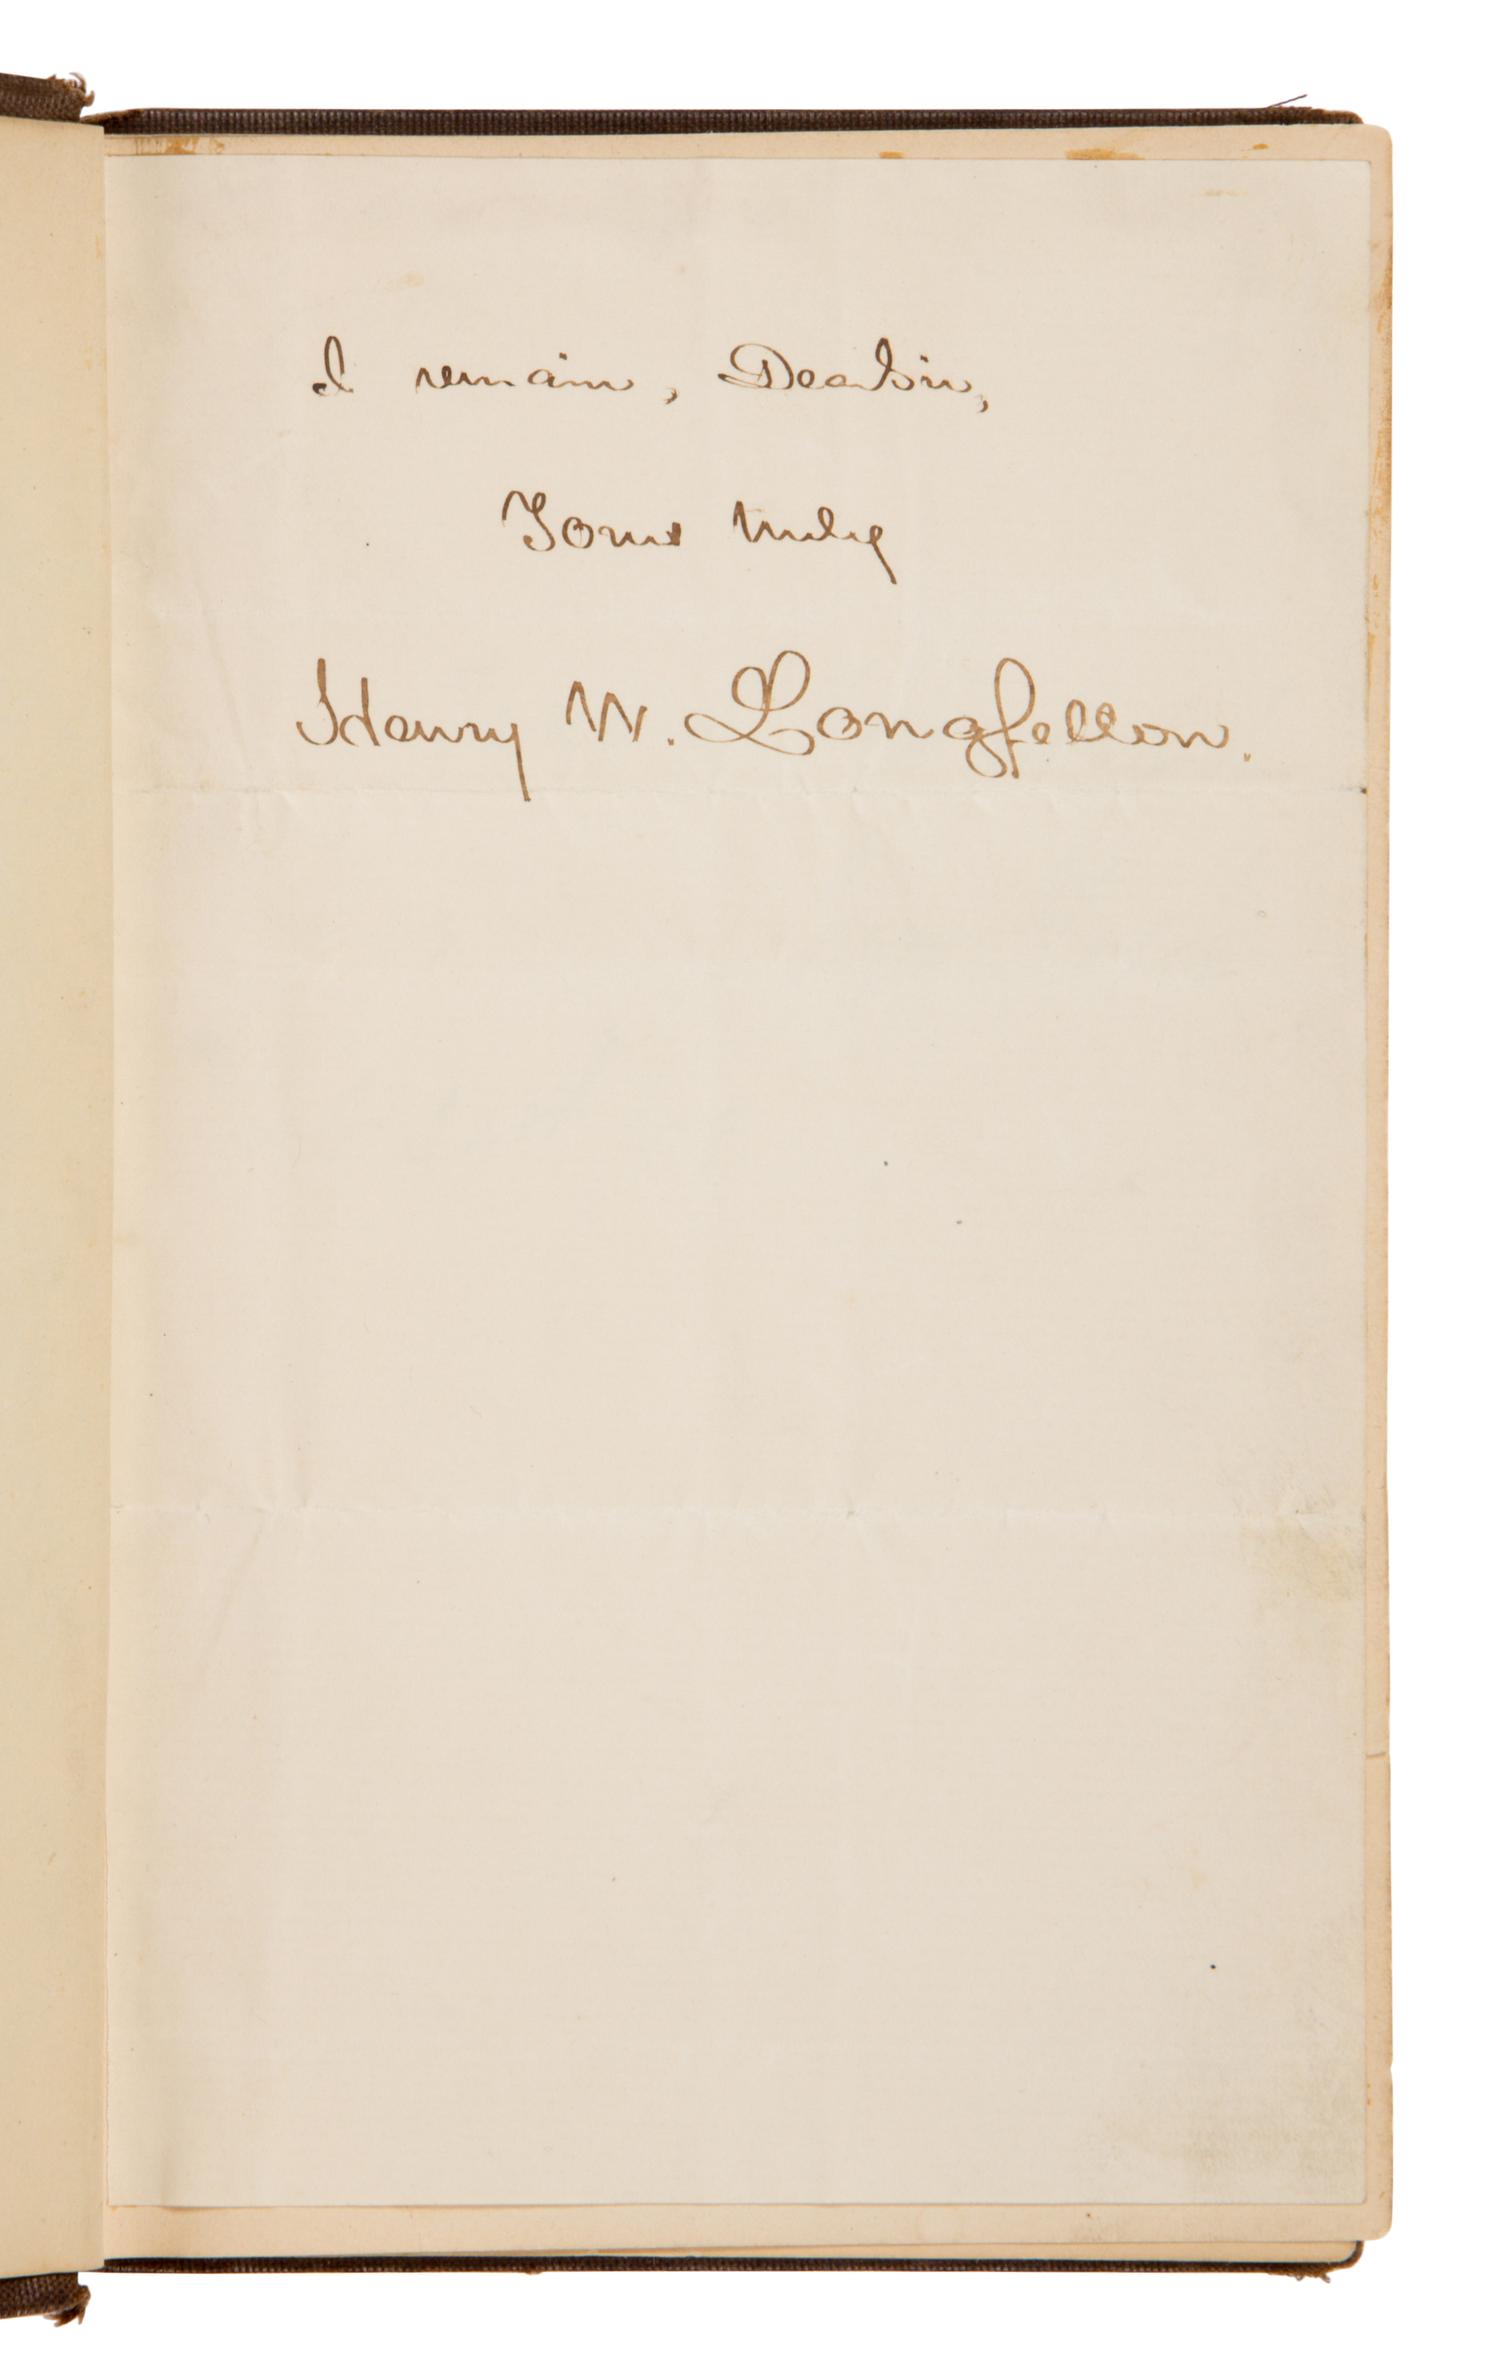 I remain, Dear Sir,
Yours truly
Henry W. Longfellow.